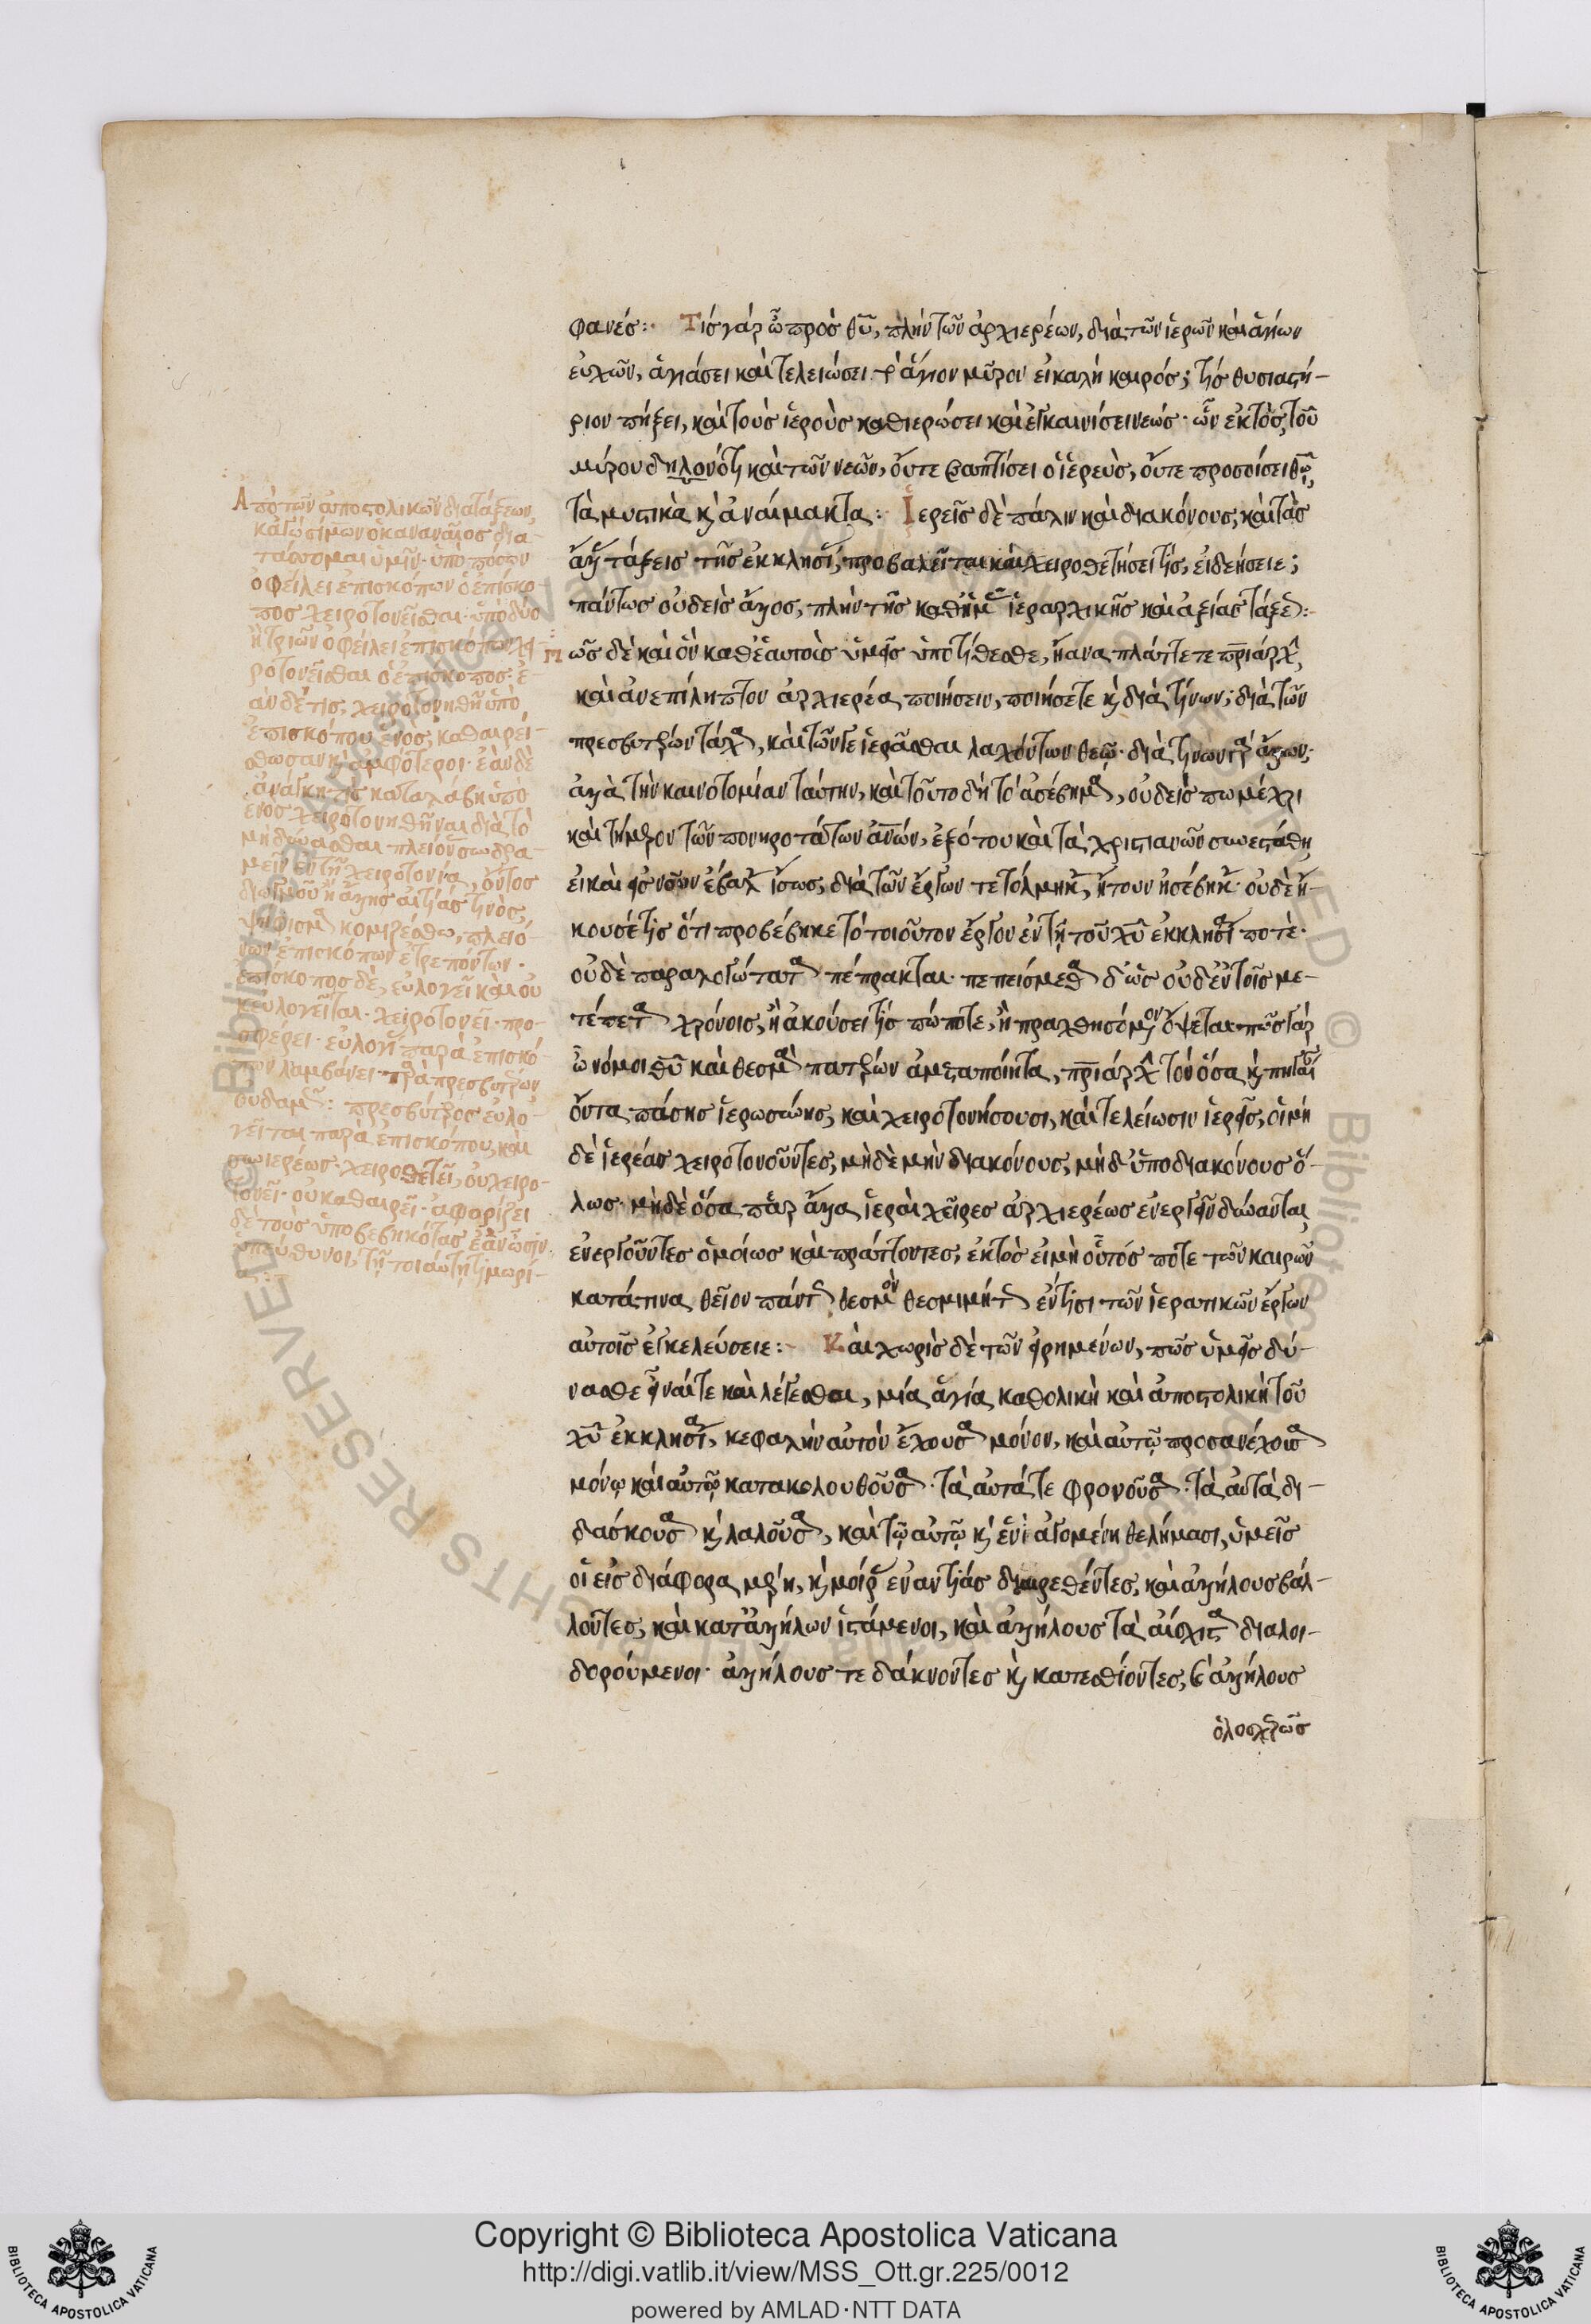 φανές: Τίς γάρ ὦ πρὸς θῦ, πλὴν τῶν ἀρχιερέων, διὰ τῶν ἱερῶν καὶ ἁγίων
εὐχῶν, ἁγιάσει καὶ τελειώσει τὸ ἅγιον μῦρον εἰ καλῆ καιρός; τίς θυσιαστή-
ριον πήξει, καὶ τοὺς ἱεροὺς καθιερώσει καὶ ἐγκαινίσει νεώς· ὧν ἐκτὸς, τοῦ
μύρου δηλονότι καὶ τῶν νεῶν, οὔτε βαπτίσει ὁ ἱερεὺς, οὔτε προσοίσει θῶ,
τὰ μυστικὰ κ ἀναίμακτα: Ἱερεῖς δὲ πάλιν καὶ διακόνους, καὶ τὰς
ἄλλ τάξεις τῆς ἐκκλησί, προβαλεῖται καὶ χειροθετήσει τίς, εἰ δεήσειε;
πάντως οὐδεὶς ἄλλος, πλὴν τῆς καθ ἡμ ἱεραρχικῆς καὶ ἀξίας τάξε:
Πῶς δὲ καὶ ὃν καθ ἑαυτοὺς ὑμεῖς ὑποτίθεσθε, ἀναπλάττετε πριάρχ,
καὶ ἀνεπίληπτον ἀρχιερέα ποιήσειν, ποιήσετε κ διὰ τίνων; διὰ τῶν
πρεσβυτέρων τάχα, καὶ τῶν γε ἱερᾶσθαι λαχόντων θεῷ· διὰ τίνων γὰρ ἄλλων;
ἀλλὰ τὴν καινοτομίαν ταύτην, καὶ τοῦτο δὴ τὸ ἀσέβημα, οὐδείς πω μέχρι
καὶ τήμερον τῶν πονηροτάτων ἀνῶν, ἐξ ὅτου καὶ τὰ χριστιανῶν συνεστάθη
ἴσως, διὰ τῶν ἔργων τετόλμηκ, ἤτουν ἠσέβηκ· οὐδὲ ἤ-
κουσέ τις ὅτι προβέβηκε τὸ τοιοῦτον ἔργον ἐν τῇ τοῦ χῦ ἐκκλησί ποτέ·
οὐδὲ παραλογώτατα πέπρακται· πεπείσμεθα δ ὡς οὐδ ἐν τοῖς με-
τέπειτα χρόνοις, ἢ ἀκούσει τίς πώποτε, ἢ πραχθησόμενον ὄψεται· πῶς γάρ
ὦ νόμοι θῦ καὶ θεσμὰ πατέρων ἀμεταποίητα, πριάρχ τὸν ὅσα κ πηγὴ
ὄντα πάσης ἱερωσύνης, καὶ χειροτονήσουσι, καὶ τελείωσιν ἱερεῖς, οἱ μὴ
δὲ ἱερέας χειροτονοῦντες, μὴ δὲ μὴν διακόνους, μὴ δ ὑποδιακόνους ὅ-
λως· μὴδὲ ὅσα παρ ἄλλα ἱεραὶ χεῖρες ἀρχιερέως ἐνεργεῖν δύνανται,
ἐνεργοῦντες ὁμοίως καὶ πράττοντες, ἐκτὸς εἰ μὴ οὗτός ποτε τῶν καιρῶν
κατά τινα θεῖον πάντως θεσμὸν ἔν τισι τῶν ἱερατικῶν ἔργων
αὐτοῖς ἐγκελεύσειε: Καὶ χωρὶς δὲ τῶν εἰρημένων, πῶς ὑμεῖς δύ-
νασθε εἶναί τε καὶ λέγεσθαι, μία ἁγία καθολικὴ καὶ ἀποστολικὴ τοῦ
χῦ ἐκκλησία, κεφαλὴν αὐτὸν ἔχουσα μόνον, καὶ αὐτῷ προσανέχουσα
μόνῳ καὶ αὐτῷ κατακολουθοῦσα· τὰ αὐτά τε φρονοῦσα· τὰ αὐτὰ δι-
δάσκουσα κ λαλοῦσα, καὶ τῷ αὐτῷ κ ἑνὶ ἀγομένη θελήμασι, ὑμεῖς
οἱ εἰς διάφορα μέρη, κ μοίρας ἐναντίας διαιρεθέντες, καὶ ἀλλήλους βάλ-
λοντες, καὶ κατ ἀλλήλων ἱστάμενοι, καὶ ἀλλήλους τὰ αἴσχιστα διαλοι-
δορούμενοι· ἀλλήλους τε δάκνοντες κ κατεσθίοντες, κ ἀλλήλους
ὁλοσχερῶς
Ἀπὸ τῶν ἀποστολικῶν διατάξεων,
κἀγὼ σίμων ὁ κανανᾶιος δια-
τάσσομαι ὑμῖν· ὑπὸ πόσων
ὀφείλει ἐπισκόπων ὁ ἐπίσκο-
πος χειροτονεῖσθαι· ὑπὸ δύο
ἢ τριῶν ὀφείλει ἐπισκόπων χει-
ροτονεῖσθαι ὁ ἐπίσκοπος· ἐ-
ὰν δέ τις, χειροτονηθῇ ὑπὸ
ἐπισκόπου ἑνός, καθαιρεί-
σθωσαν κ ἀμφότεροι· ἐὰν δὲ
ἀνάγκη τις καταλάβῃ ὑπὸ
ἑνὸς χειροτονηθῆναι διὰ τὸ
μὴ δύνασθαι πλείον συνδρα-
μεῖν ἐν τῇ χειροτονία, ὄντος
διωγμοῦ ἢ ἄλλης αἰτίας τινὸς,
ψήφισμα κομιζέσθω, πλειό-
νων ἐπισκόπων ἐτρεπόντων·
ἐπίσκοπος δὲ, εὐλογεῖ καὶ οὐ
κ εὐλογεῖται· χειροτονεῖ· προ-
σφέρει· εὐλογί παρὰ ἐπισκό-
πων λαμβάνει· παρὰ πρεσβυτέρων
οὐδαμ: πρεσβύτερος εὐλο-
γεῖται παρὰ ἐπισκόπου, καὶ
συνιερέως· χειροθετεῖ, οὐ χειρο-
τονεῖ· οὐ καθαιρεῖ· ἀφορίζει
δὲ τοὺς ὑποβεβηκότας ἐὰν ὦσιν
ὑπεύθυνοι, τῇ τοιαύτῃ τιμωρί-
α:
Copyright © Biblioteca Apostolica Vaticana
http://digi.vatlib.it/view/MSS_Ott.gr.225/0012
powered by AMLAD·NTT DATA
BIBLIOTECA APOSTOLICA VATICANA
BIBLIOTECA APOSTOLICA VATICANA